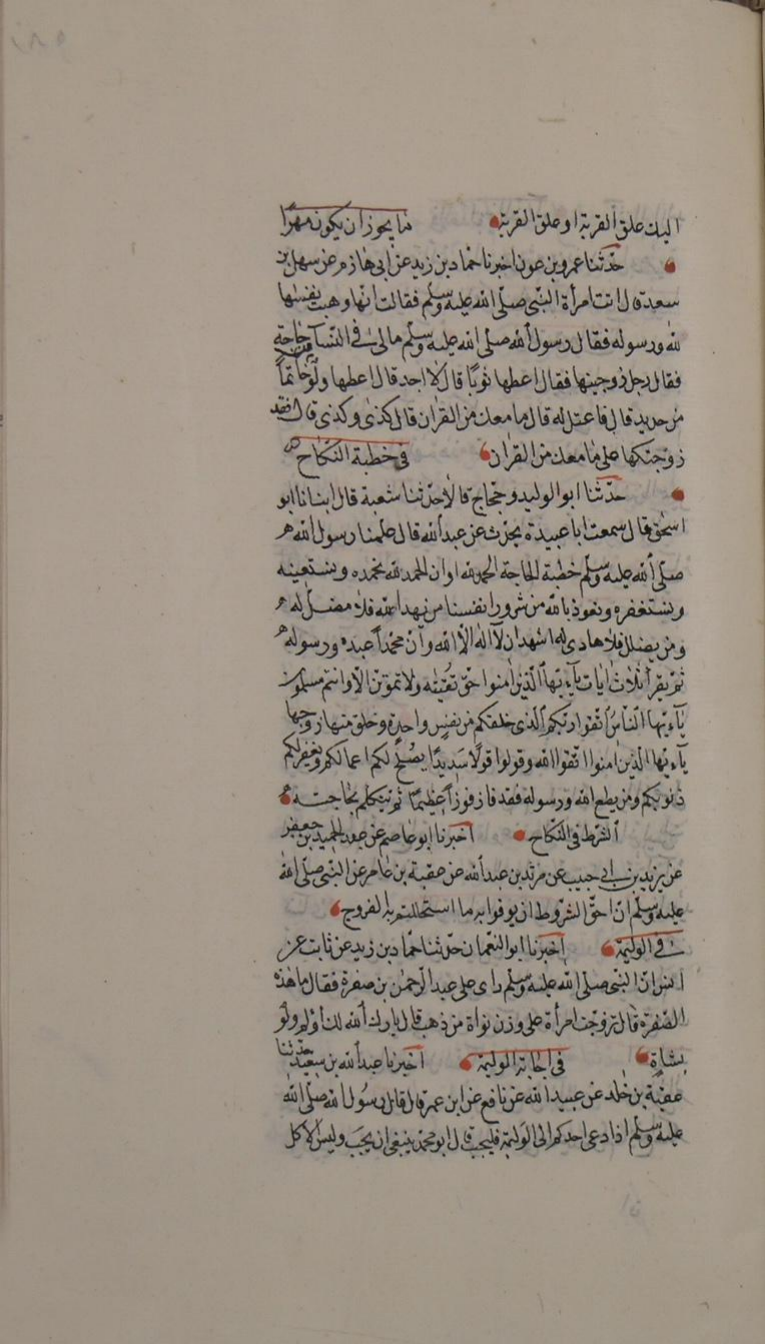 اليك علق القربة او علق القربة ما يجوز ان يكون مهرا
حدثنا عمرو بن عون اخبرنا حماد بن زيد عن ابى حازم عن سهل بن
سعد قال اتت امرأة النبى صلى الله عليه وسلم فقالت انها وهبت نفسها
لله ورسوله فقال رسول الله صلى الله عليه وسلم مالى فى النساء من حاجة
فقال رجل زوجنيها فقال اعطها ثوبا قال لا اجد قال اعطها ولو خاتما
من حديد قال فاعتل له قال ما معك من القران قال كذى وكذى قال فقد
زوجتكها على ما معك من القران فى خطبة النكاح
حدثنا ابو الوليد وحجاج قالا حدثنا شعبة قال انبانا ابو
اسحق قال سمعت ابا عبيدة يحدث عن عبد الله قال علمنا رسول الله
صلى الله عليه وسلم خطبة الحاجة الحمد لله او ان الحمد لله نحمده ونستعينه
ونستغفره ونعوذ بالله من شرور انفسنا من يهد الله فلا مضل له
ومن يضلل فلا هادى له اشهد ان لا اله الا الله وان محمدا عبده ورسوله
ثم يقرأ ثلاث ايات يآءيها الذين امنوا حق تقيته ولا تموتن الا وانتم مسلمون
يآءيها الناس اتقوا ربكم الذى خلقكم من نفس واحدة وخلق منها زوجها
يآءيها الذين امنوا اتقوا الله وقولوا قولا سديدا يصلح لكم اعمالكم ويغفر لكم
ذنوبكم ومن يطع الله ورسوله فقد فاز فوزا عظيما ثم يتكلم بحاجته
الشرط فى النكاح اخبرنا ابو عاصم عن عبد الحميد بن جعفر
عن يزيد بن ابى حبيب عن مرثد بن عبد الله عن عقبة بن عامر عن النبى صلى الله
عليه وسلم ان احق الشروط ان يوفوا به ما استحللتم به الفروج
فى الوليمة اخبرنا ابو النعمان حدثنا حماد بن زيد عن ثابت عن
انس ان النبى صلى الله عليه وسلم راى على عبد الرحمن بن صفرة فقال ما هذه
الصفرة قال تزوجت امرأة على وزن نواة من ذهب قال بارك الله لك اولم ولو
بشاة فى اجابة الوليمة اخبرنا عبد الله بن سعيد حدثنا
عقبة بن خلد عن عبيد الله عن نافع عن ابن عمر قال قال رسول الله صلى الله
عليه وسلم اذا دعى احدكم الى الوليمة فليجب قال ابو محمد ينبغى ان يجب وليس الاكل